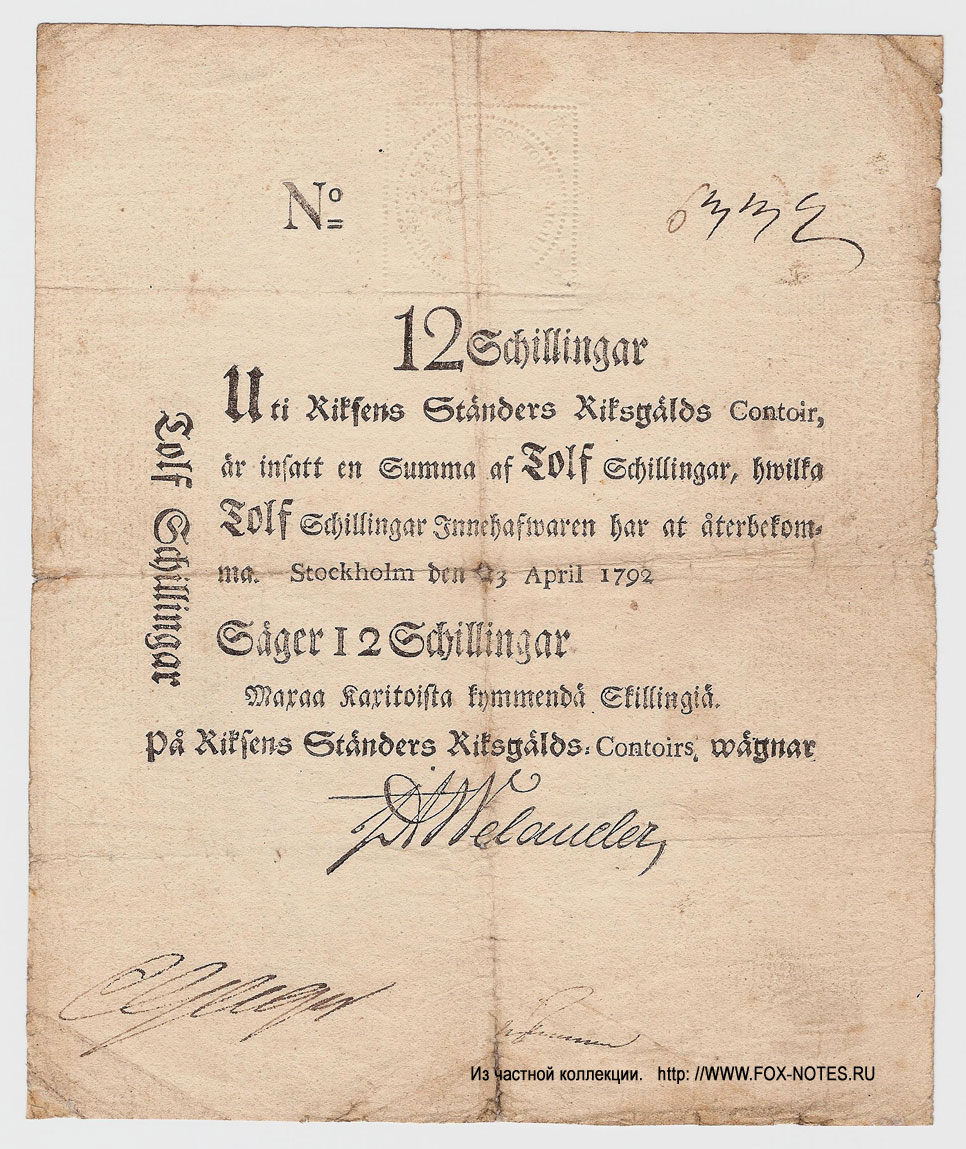 No
12 Schillingar
Uti Riksens Ständers Riksgälds Contoir,
är insatt en Summa af Tolf Schillingar, hwilka
Tolf Schillingar Innehafwaren har at återbekom-
ma. Stockholm den 23 April 1792
Säger 12 Schillingar
Maxaa Kaxitoista kymmendä Skillingiä.
På Riksens Ständers Riksgälds-Contoirs, wägnar
Tolf Schillingar
Welander,
Из частной коллекции. http: //WWW.FOX-NOTES.RU